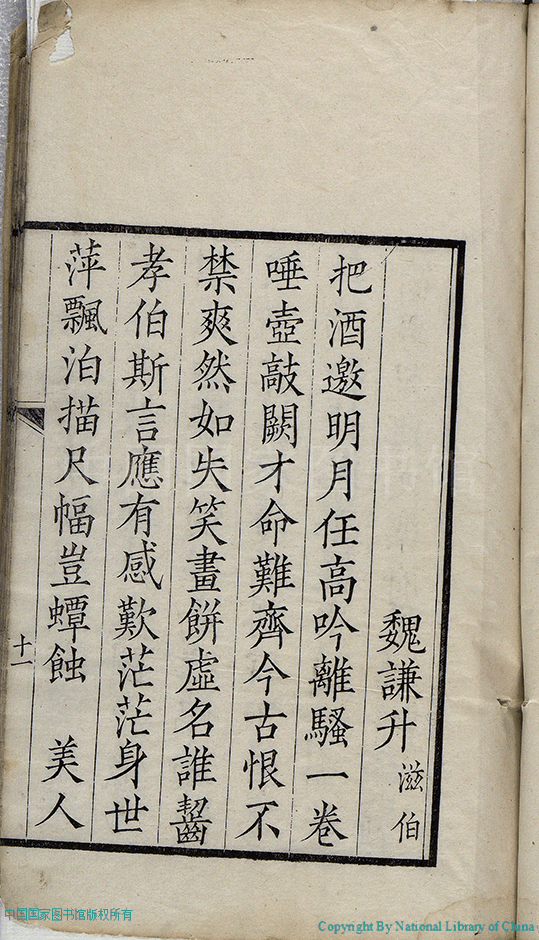 魏謙升 滋伯
把酒邀明月任高吟離騷一卷
唾壺敲闕才命難齊今古恨不
禁爽然如失笑畫餅虛名誰齧
孝伯斯言應有感歎茫茫身世
萍飄泊描尺幅豈蟫蝕 美人
十一
中国国家图书馆版权所有
Copyright By National Library of China